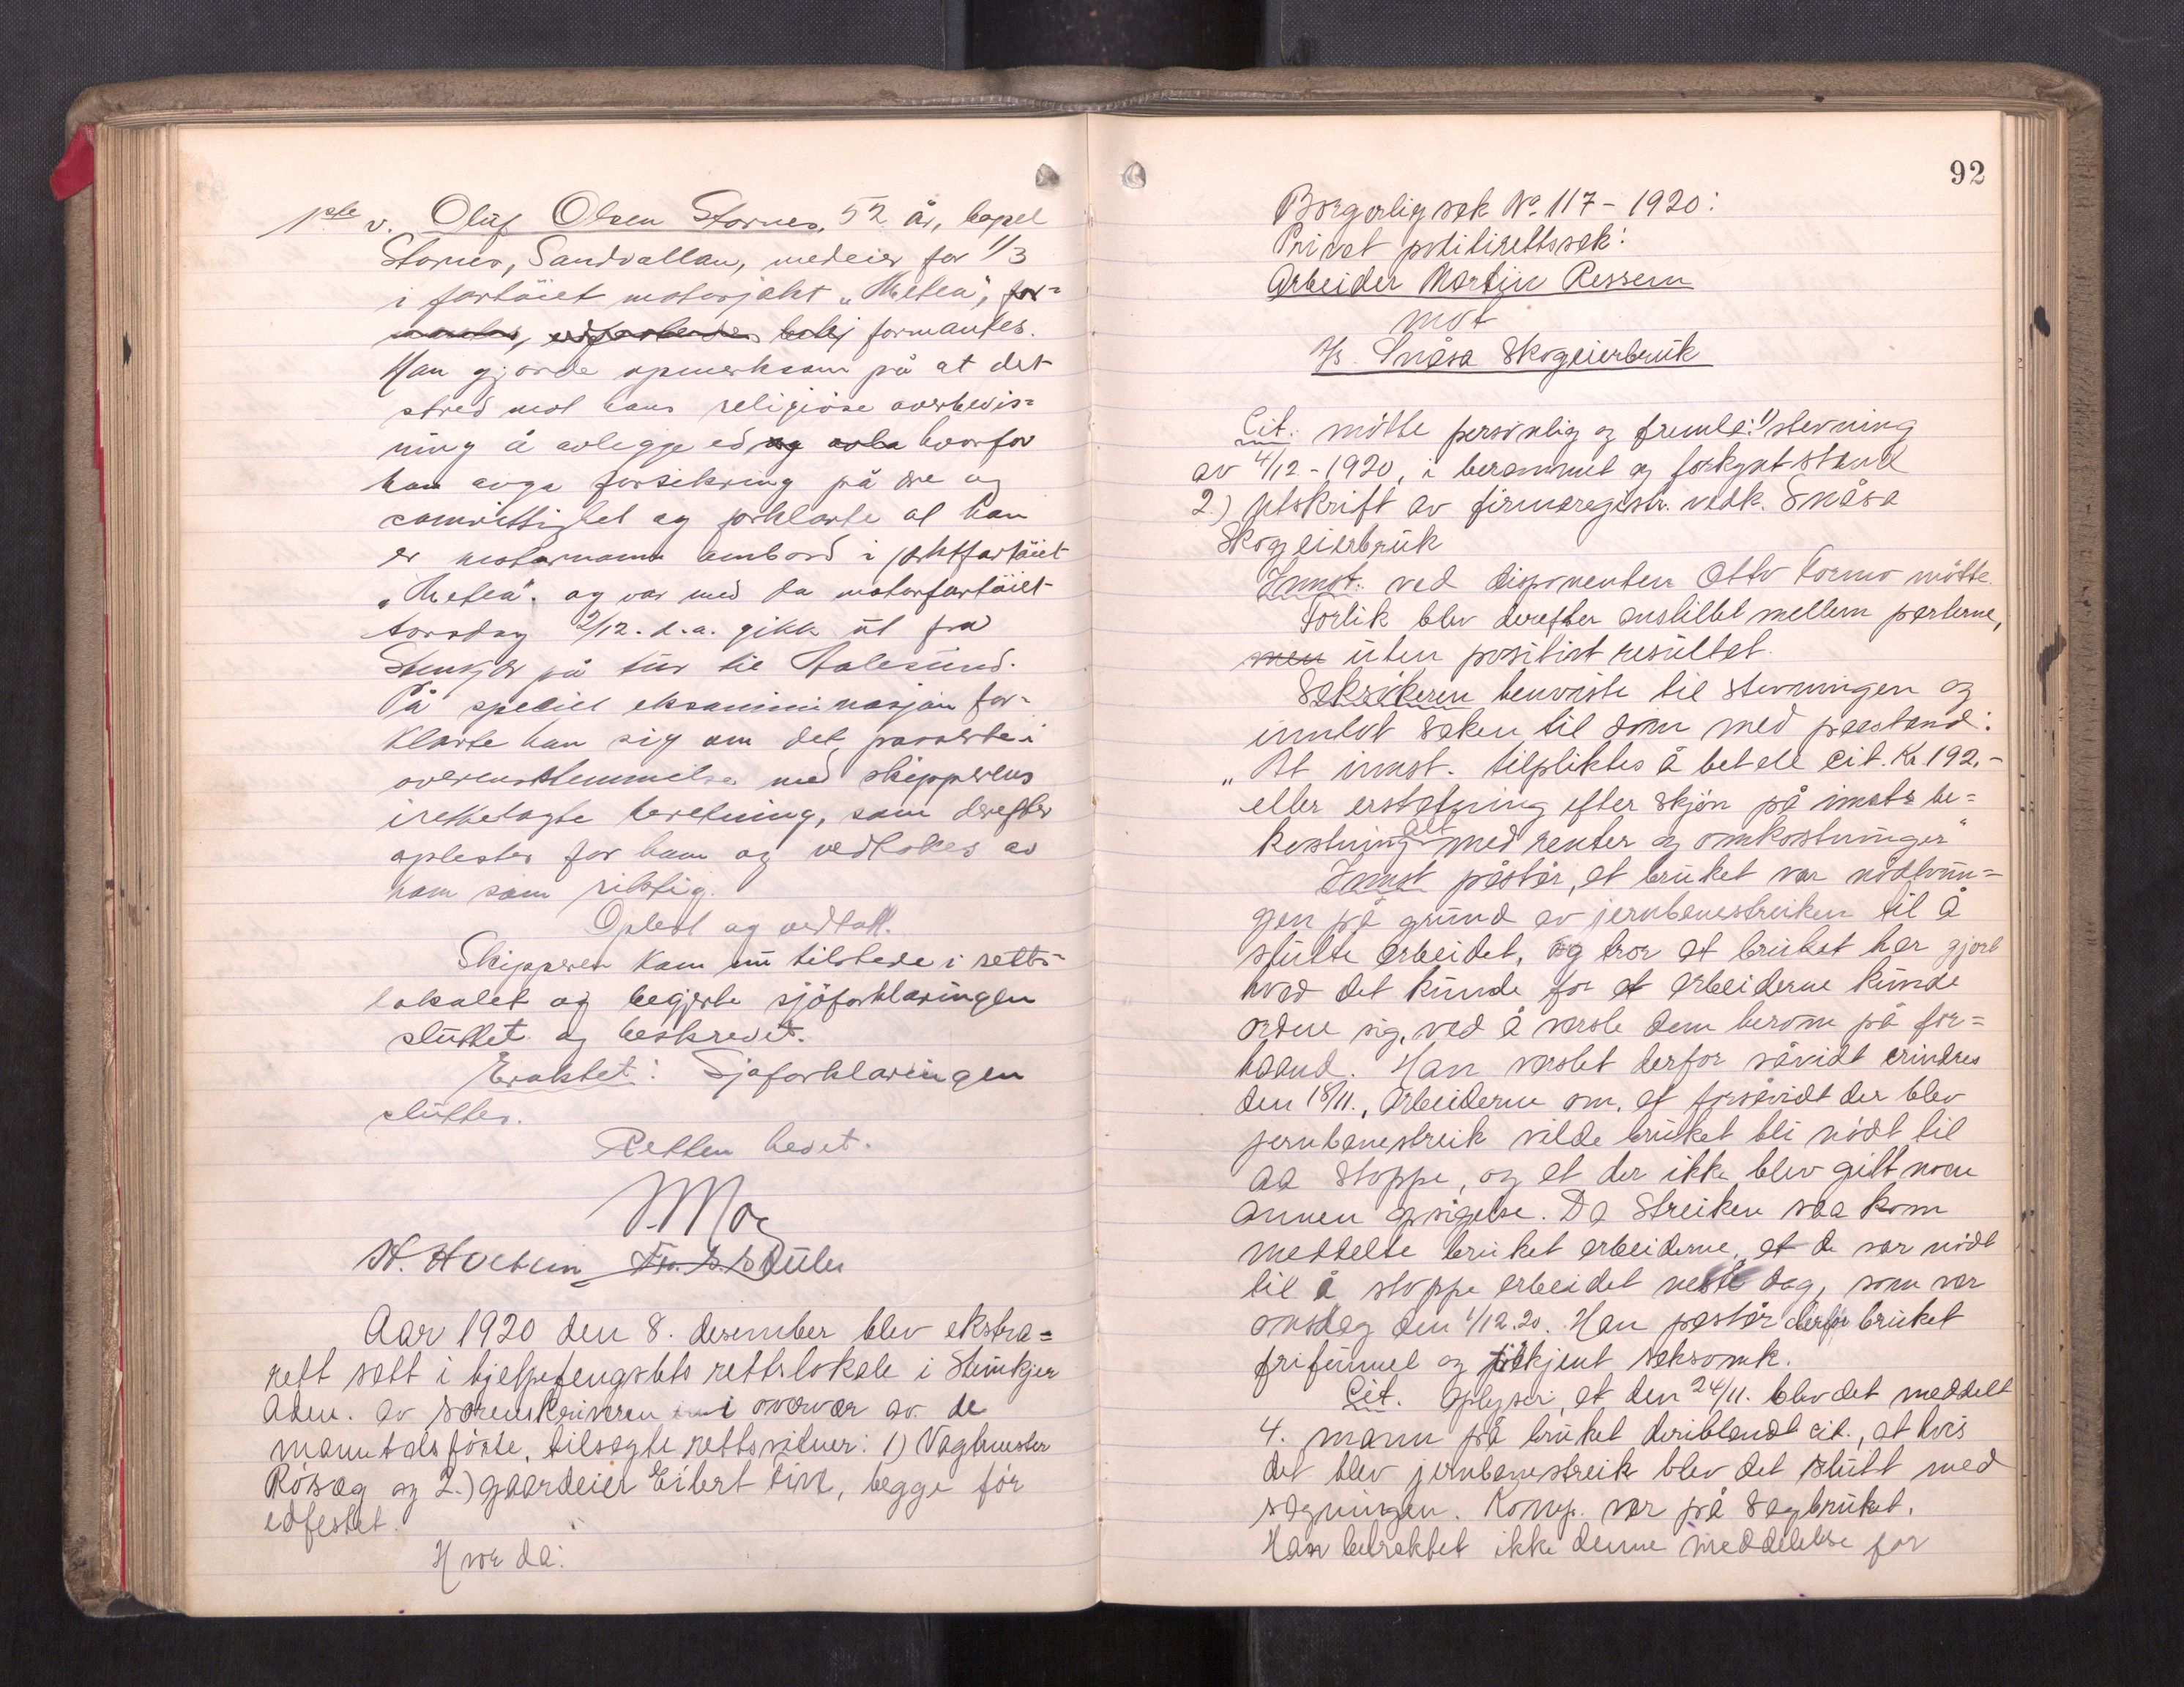 1ste v. Oluf Olsen Stornes, 52 år, bopel
Stornes, Sandvallan, medeier for 1/3
i fartöiet motorjakt „Thetea", for-
formantes.
Han gjorde opmerksom på at det
stred mot hans religiöse overbevis-
ning å avlegge ed og avla hvorfor
han avga forsikring på ære og
samvittighet og forklarte at han
er motormann ombord i fraktfartöiet
„Thetea". og var med da motorfartöiet
torsdag 2/12. d.a. gikk ut fra
Stenkjær på tur til Aalesund.
På speciel eksaminasjon for-
klarte han sig om det passerte i
overensstemmelse med skipperens
irettelagte beretning, som derefter
oplestes for ham og vedtokes av
ham som riktig.
Oplest og vedtatt.
Skipperen kom nu tilstede i retts-
lokalet og begjerte sjöforklaringen
sluttet og beskrevet.
Eraktet: Sjöforklaringen
sluttes.
Retten hevet.
Aar 1920 den 8. desember blev ekstra-
rett satt i hjelpefengslets rettslokale i Steinkjer
Adm. av sorenskriveren i overvær av de
manntalsförte, tilsagte rettsvitner: 1) Vagtmester
Rösæg og 2.) gaardeier Eilert , begge för
edfestet.
Hvor da:
92
Borgerlig sak No. 117 - 1920:
Privat politirettssak:
Arbeider Martin Ressem
mot
I/s. Snåsa Skogeierbruk
Cit. mötte personlig og fremla: 1) stevning
av 4/12 - 1920, i berammet og forkynt stand
2.) Utskrift av firmaregistr. vedk. Snåsa
Skogeierbruk
Innst. ved disponenten Otto Formo mötte.
Forlik blev derefter anstillet mellem parterne,
men uten positivt resultat.
Saksökeren henviste til stevningen og
innlot saken til dom med paastand:
„At innst. tilpliktes å betale cit. Kr. 192.-
eller erstatning efter skjön på innsts be-
kostning alt med renter og omkostninger"
Innst påstår, at bruket var nödtvun-
gen på grund av jernbanestreiken til å
slutte arbeidet, og tror at bruket har gjort
hvad det kunde for at arbeiderne kunde
ordne sig, ved å varsle dem herom på for-
haand. Han varslet derfor såvidt erindres
den 18/11., arbeiderne om, at forsåvidt der blev
jernbanestreik vilde bruket bli nödt til
aa stoppe, og at der ikke blev gitt noen
annen opsigelse. Da Streiken saa kom
meddelte bruket arbeiderne, at de var nödt
til å stoppe arbeidet neste dag, som var
onsdag den 1/12.20. Han påstår derfor bruket
frifunnet og tilkjent saksomk.
Cit. oplyser, at den 24/11. blev det meddelt
4. mann på bruket deriblandt cit., at hvis
det blev jernbanestreik blev det slutt med
sagningen. Komp. var på sagbruket.
Han betraktet ikke denne meddelelse for